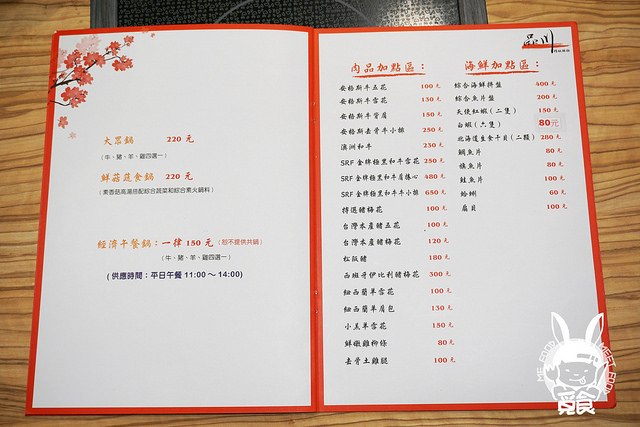 大眾鍋 220 元
(牛、豬、羊、雞四選一)
鮮菇蔬食鍋 220 元
(素香菇高湯搭配綜合蔬菜和綜合素火鍋料)
經濟午餐鍋:一律 150 元 (恕不提供共鍋)
(牛、豬、羊、雞四選一)
(供應時間:平日午餐 11:00 ~ 14:00)
品川
肉品加點區:
安格斯牛五花 100 元
安格斯牛雪花 130 元
安格斯牛背肩 150 元
安格斯去骨牛小排 250 元
澳洲和牛 230 元
SRF 金牌極黑和牛雪花 250 元
SRF 金牌極黑和牛肩捲心 480 元
SRF 金牌極黑和牛牛小排 650 元
特選豬梅花 100 元
台灣本產豬五花 100 元
台灣本產豬梅花 120 元
松阪豬 180 元
西班牙伊比利豬梅花 300 元
紐西蘭羊雪花 100 元
紐西蘭羊肩包 130 元
小羔羊雪花 150 元
鮮嫩雞柳條 80 元
去骨土雞腿 100 元
海鮮加點區:
綜合海鮮拼盤 400 元
綜合魚片盤 200 元
天使紅蝦(二隻) 150 元
白蝦(六隻) 80元
北海道生食干貝(二顆) 280 元
鯛魚片 80 元
鱸魚片 80 元
鮭魚片 100 元
蛤蜊 60 元
扇貝 100 元
ME FOOD MEET FOOD
覓食